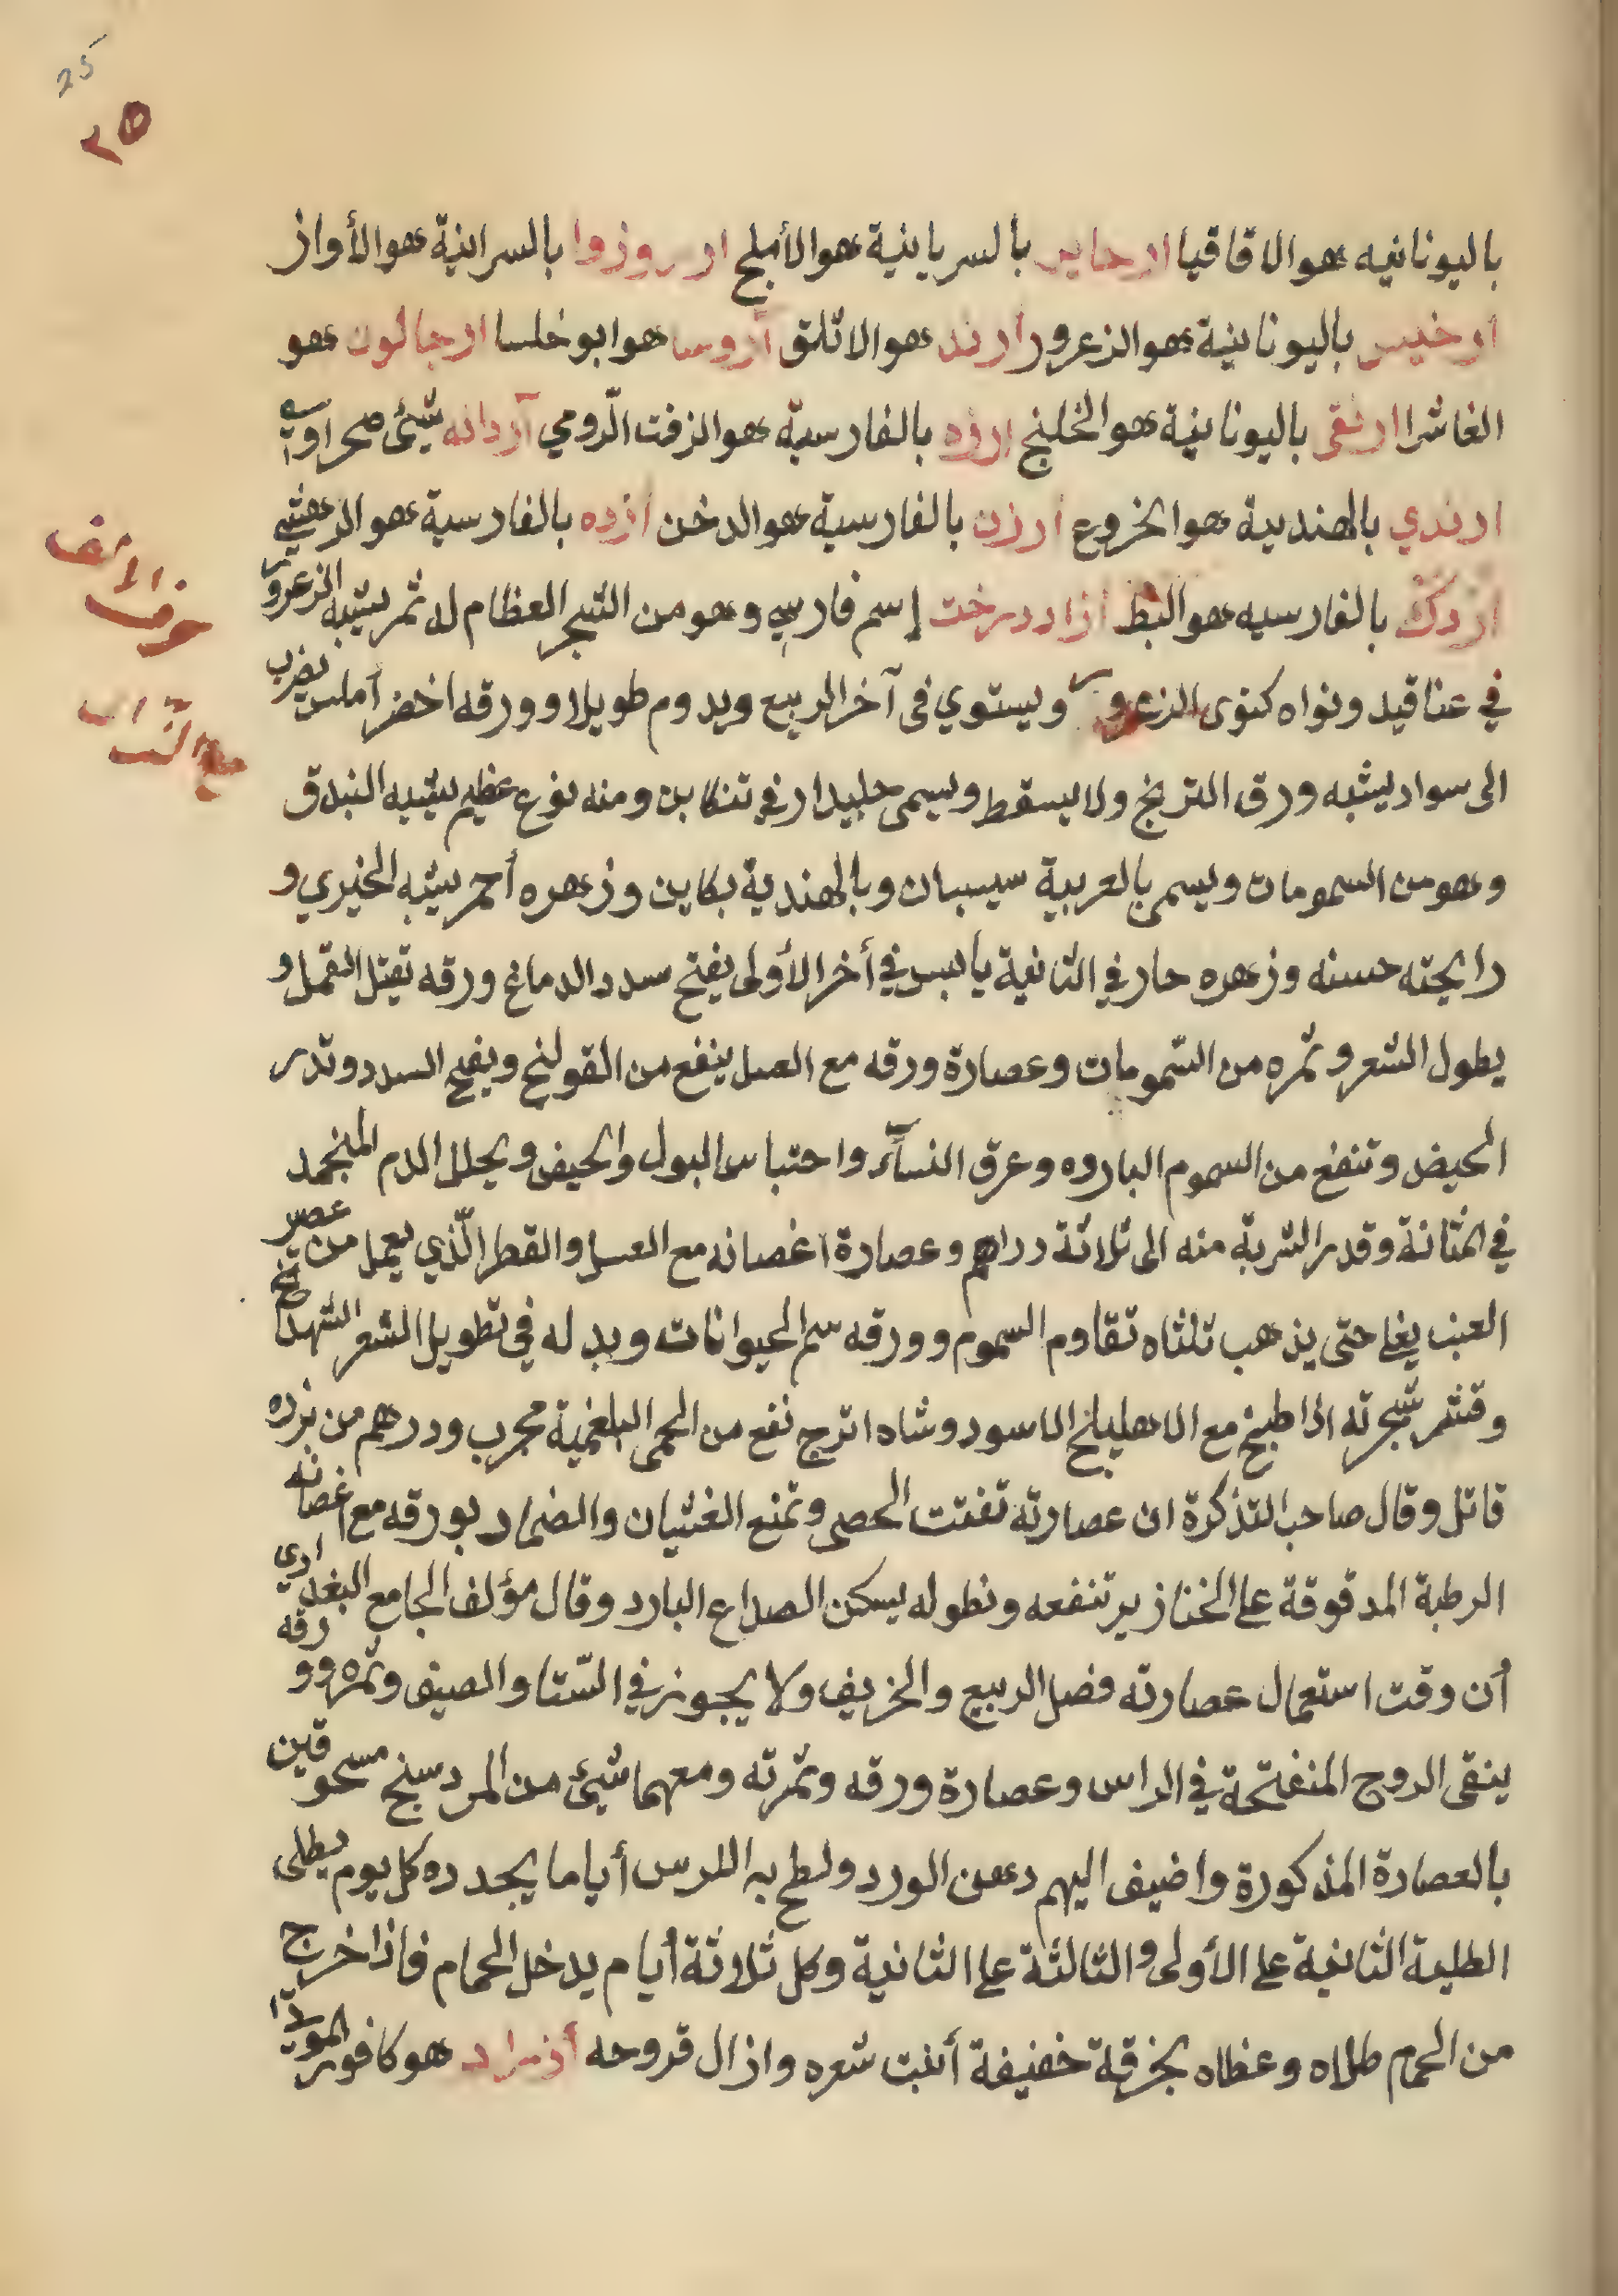 25
٢٥
باليونانيه هو الاقاقيا بالسريانية هو الأملج بالسرانية هو الأواز
ارخيس باليونانية هو الزعرور ارند هو الاثلق هو ابو خلسا ارجالون هو
الفاشرا ارثقى باليونانية هو الخلنج ارزد بالفارسية هو الزفت الرّومي آردانه شيئ صحراوي
ارندي بالهندية هو الخروع أرزن بالفارسية هو الدخن ازوه بالفارسية هو الدهشي
اردك بالفارسيه هو البط ازاد درخت إسم فارسي وهو من الشجر العظام له ثمر يشبه الزعرور
في عناقيد ونواه كنوى الزعرور ويستوي في آخر الربيع ويدوم طويلا وورقه اخضر أملس يضرب
الى سواد يشبه ورق الترنج ولا يسقط ويسمى جليدار في تنكابن ومنه نوع عظيم يشبه البندق
وهو من السمومات ويسمى بالعربية سيسبان وبالهندية بكاين وزهره أحمر يشبه الخيري و
رايحته حسنه وزهره حار في الثانية يابس في أخر الأولى يفتح سدد الدماغ ورقه تقتل القمل و
يطول الشعر وثمره من السّمومات وعصارة ورقه مع العسل ينفع من القولنج ويفتح السدد وتدر
الحيض وتنفع من السموم البارده وعرق النسآء واحتباس البول والحيض ويحلل الدم المنجمد
في المثانة وقدر الشربة منه الى ثلاثة دراهم وعصارة اغصانه مع العسل والقطر الّذي يعمل من عصير
العنب يغلى حتى يذهب ثلثاه تقاوم السموم وورقه سم الحيوانات وبدله في تطويل الشعر الشهدانج
وقشر شجرته اذا طبخ مع الاهليلج الاسود وشاه اترج نفع من الحمى البلغمية مجرب ودرهم من بزره
قاتل وقال صاحب التذكرة ان عصارته تفتت الحصى وتمنع الغثيان والضماد بورقه مع اغصانه
الرطبة المدقوقة على الخنازير تنفعه ونطوله يسكن الصداع البارد وقال مؤلف الجامع البغدادي
أن وقت استعمال عصارته فصل الربيع والخريف ولا يجوز في الشّتا والصيف وثمره وورقه
ينقى الروح المنفتحة في الراس وعصارة ورقه وثمرته ومعهما شيئ من المردسنج مسحوقين
بالعصارة المذكورة واضيف اليهم دهن الورد ولطح به اللرس أياما يجدده كل يوم يطلى
الطلية الثانية على الأولى والثالثة على الثانية وكل ثلاثة أيام يدخل الحمام فاذا خرج
من الحمام طلاه وغطاه بخرقة خفيفة أنبت شعره وازال قروحه هو كافور
حرف الألف
مع الزاي